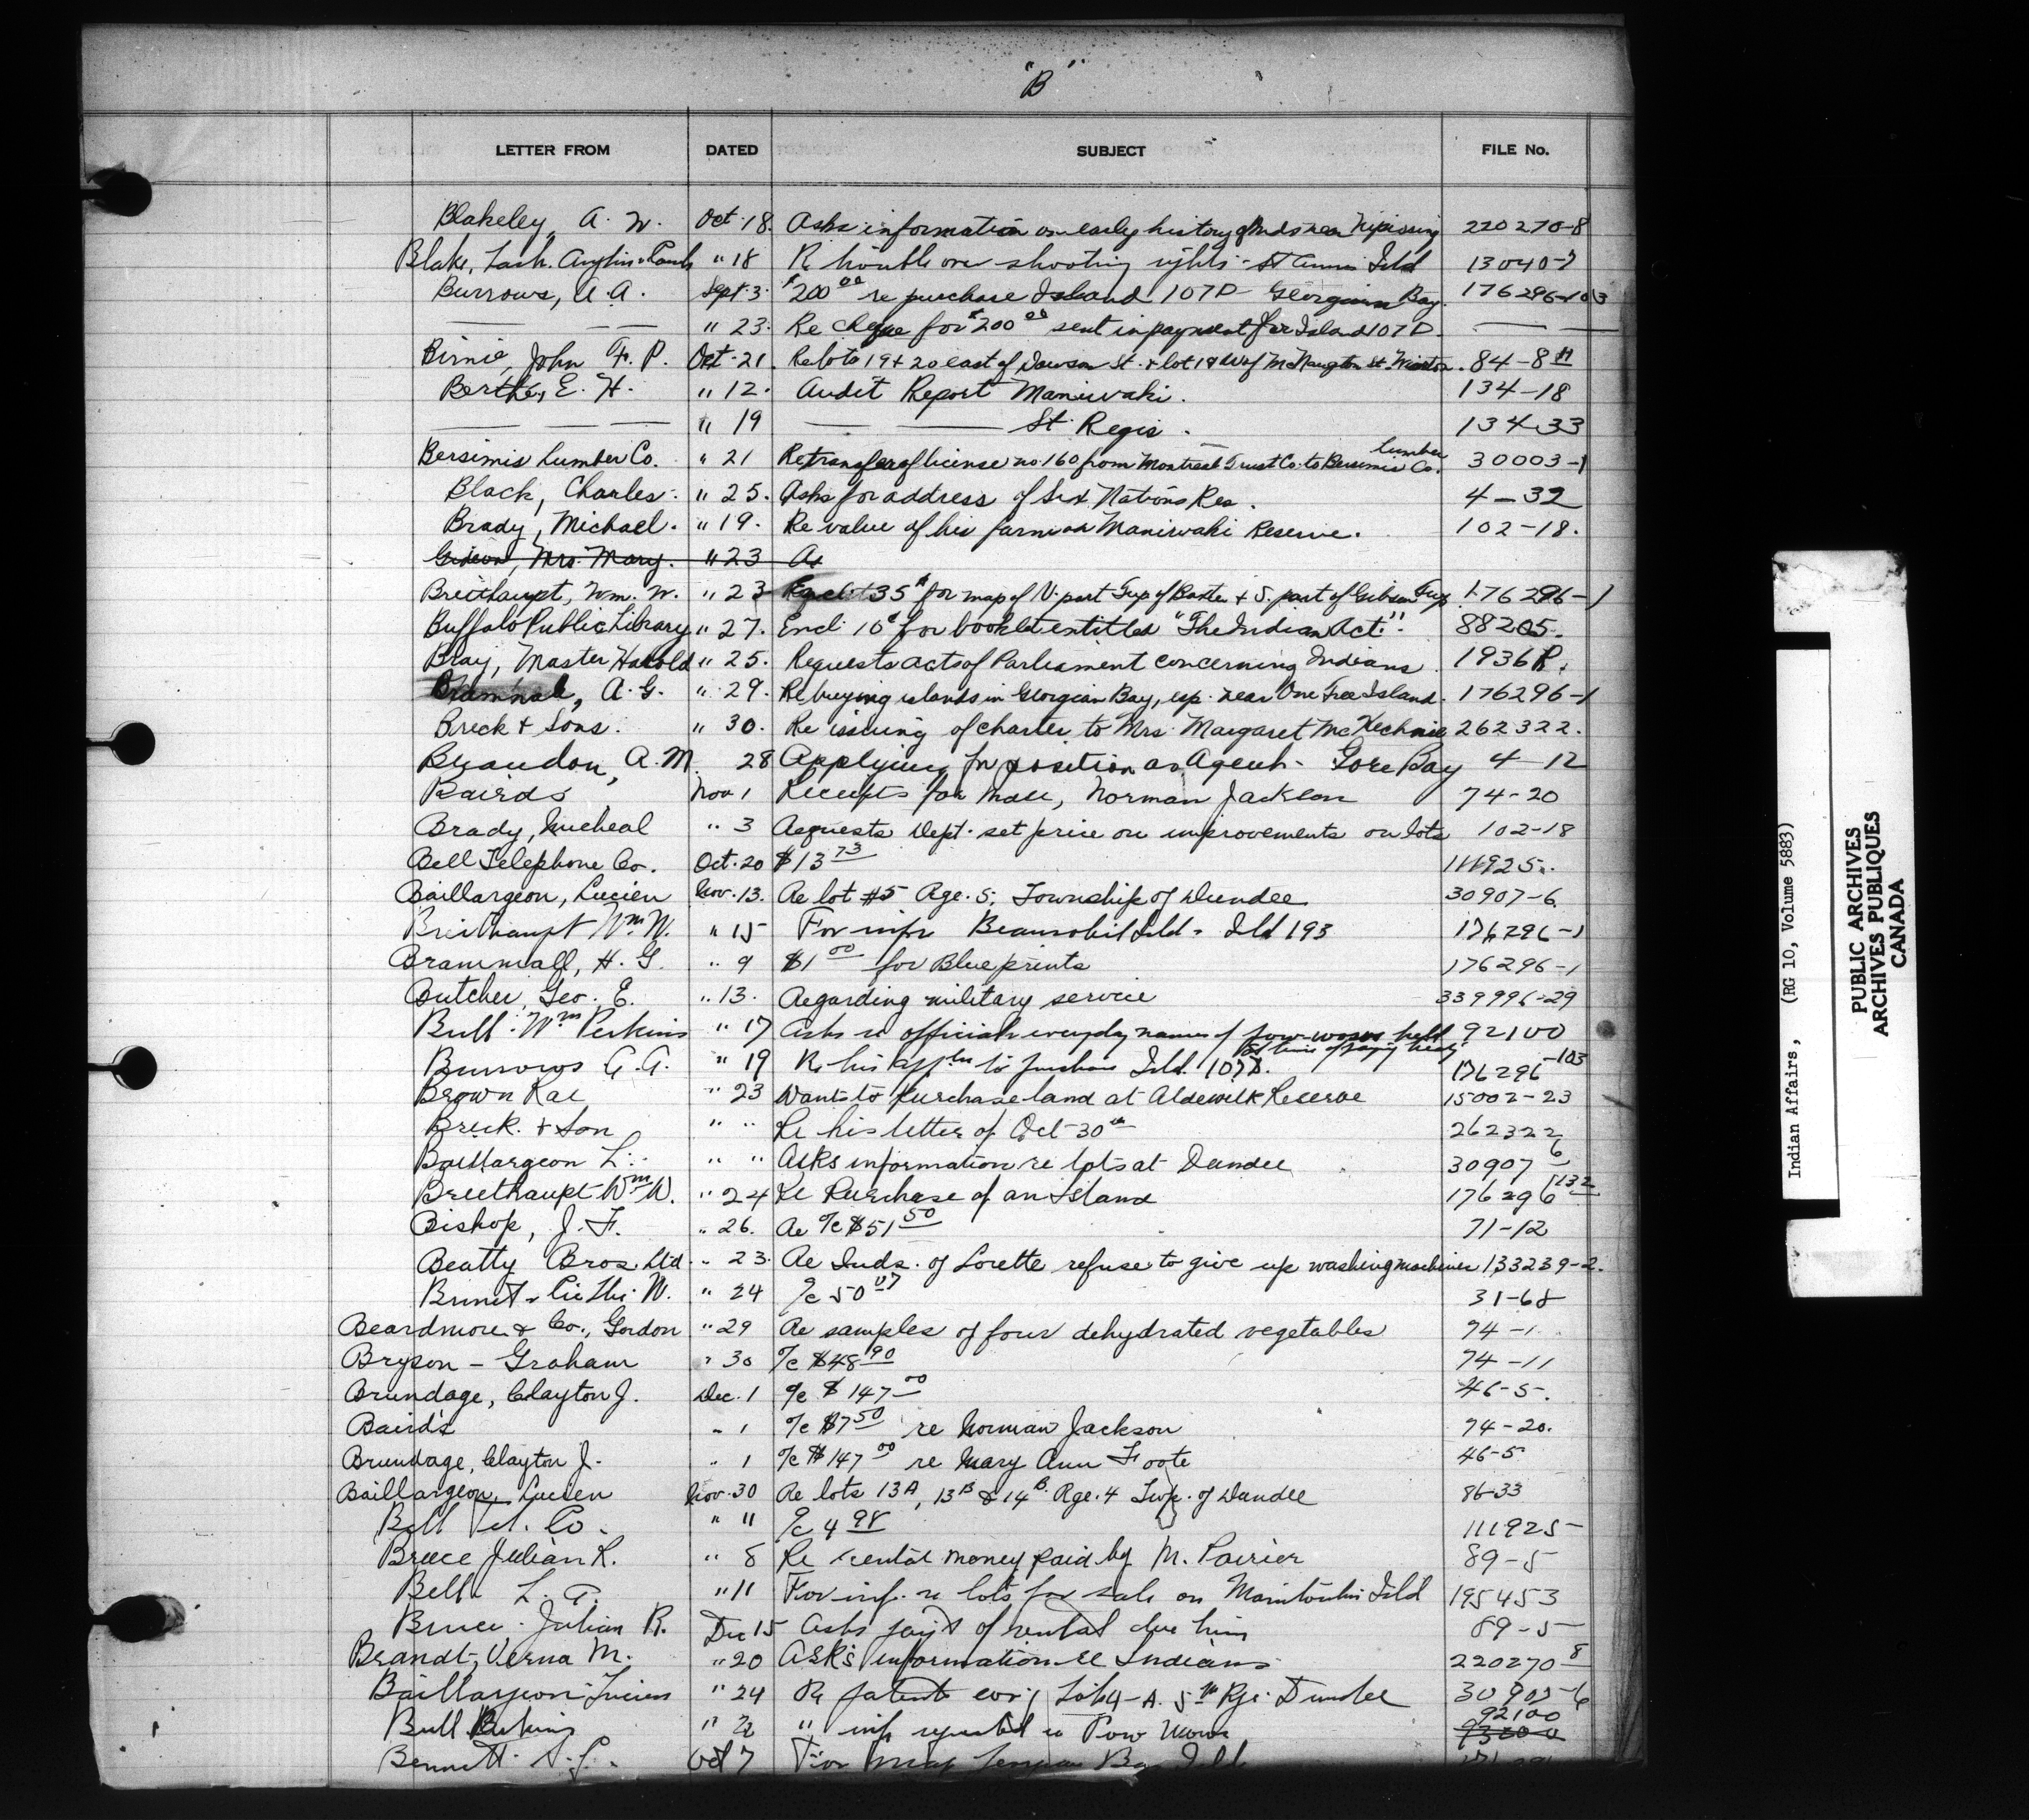 "B"
LETTER FROM DATED SUBJECT FILE No.
Blakeley, A. W. Oct. 18. Asks information on early history of Inds near Nipissing 220270-8
Blake, Lash, Anglin & " 18 Re trouble over shooting rights - St Annes Isld 13040-7
Burrows, A. A. Sept. 3. $200 00 re purchase Island 107D Georgian Bay. 176296-103
— — — " 23. Re cheque for $200 00 sent in payment for Island 107D. — —
Birnie, John F. P. Oct. 21. Re lots 19 & 20 east of Dawson St. & lot 18 W of McNaughton St. Wiarton. 84-8
Berthe, E. H. " 12. Audit Report Maniwaki. 134-18
— — — " 19 — — St. Regis. 134-33
Bersimis Lumber Co. " 21 Re transfer of license no. 160 from Montreal Trust Co. to Bersimis Lumber Co. 30003-1
Black, Charles. " 25. Asks for address of Six Nations Res. 4-32
Brady, Michael. " 19. Re value of his farm on Maniwaki Reserve. 102-18.
Gideon, Mrs. Mary. " 23 As
Breithaupt, Wm. W. " 23 Encl. 35¢ for map of N. part Twp of Baxter & S. part of Gibson Twp. 176296-1
Buffalo Public Library " 27. Encl. 10¢ for booklet entitled "The Indian Act." 88205.
Bray, Master Harold " 25. Requests acts of Parliament concerning Indians. 1936R.
Bramhall, A. G. " 29. Re buying islands in Georgian Bay, esp. near One Tree Island. 176296-1
Breck & Sons. " 30. Re issuing of charter to Mrs. Margaret McKechnie 262322.
Beaudon, A. M. 28 Applying for position as Agent - Gore Bay 4-12
Bairds Nov 1 Receipts for , Norman Jackson 74-20
Brady, Micheal " 3 Requests Dept. set price on improvements on lots 102-18
Bell Telephone Co. Oct. 20 $13 73 111925.
Baillargeon, Lucien Nov. 13. Re lot #5 Rge. 5, Township of Dundee 30907-6
Breithaupt Wm W. " 15 For infr Beausoliel Isld - Isld 193 176296-1
Brammall, H. G. " 9 $1 00 for Blue prints 176296-1
Butcher, Geo. E. " 13. Regarding military service 339996-29
Bull. Wm Perkins " 17 Asks re official everyday names of pow-wows held 92100
at time of paying treaty
Burrows A. A. " 19 Re his appltn to purchase Isld. 107D. 176296-103
Brown Rae " 23 Wants to purchase land at Reserve 15002-23
Breck. & Son " " Re his letter of Oct-30th 262322
Baillargeon L. " " Asks information re lots at Dundee 30907 6
Breithaupt Wm W. " 24 Re Purchase of an Island 176296 132
Bishop, J. F. " 26. Re a/c $51 50 71-12
Beatty Bros. Ltd. " 23. Re Inds. of Lorette refuse to give up washing machines 133239-2.
W. " 24 a/c 50 07 31-68
Beardmore & Co., Gordon " 29 Re samples of four dehydrated vegetables 74-1
Bryson - Graham " 30 a/c $48 90 74-11
Brundage, Clayton J. Dec. 1 a/c $147 00 46-5.
Baird's " 1 a/c $7 50 re Norman Jackson 74-20.
Brundage, Clayton J. " 1 a/c $147 00 re Mary Ann Foote 46-5
Baillargeon, Lucien Nov. 30 Re lots 13A, 13B & 14B. Rge. 4 Twp. of Dundee 86-33
Bell Tel. Co. " 11 a/c 4 98 111925
Bruce Julian R. " 8 Re rental money paid by M. Poirier 89-5
Bell L. A. " 11 For inf. re lots for sale on Manitoulin Isld 195453
Bruce. Julian R. Dec 15 Asks pay't of rental due him 89-5
Brandt, Verna M. " 20 Asks information re Indians 220270 8
Baillargeon Lucien " 24 Re patent Lot 4-A. 5th Rge. Dundee 30907-6
Bull Perkins " 22 " inf requested re Pow Wows 92100
Bennett Oct 7 For map Bay Isld
Indian Affairs, (RG 10, Volume 5883)
PUBLIC ARCHIVES
ARCHIVES PUBLIQUES
CANADA